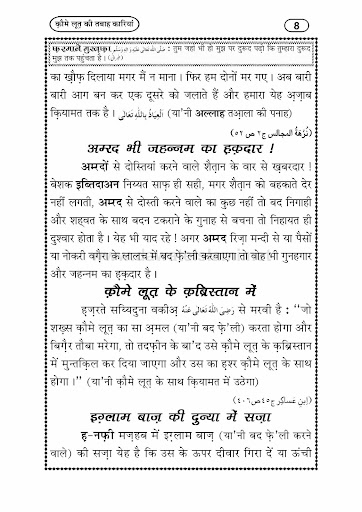 क़ौमे लूत़ की तबाह कारियां
8
फ़रमाने मुस्त़फ़ा صلى الله تعالى عليه واله وسلم : तुम जहां भी हो मुझ पर दुरूद पढ़ो कि तुम्हारा दुरूद
मुझ तक पहुंचता है ।
का ख़ौफ़ दिलाया मगर मैं न माना । फिर हम दोनों मर गए । अब बारी
बारी आग बन कर एक दूसरे को जलाते हैं और हमारा येह अ़ज़ाब
क़ियामत तक है । اَلْعِيَاذُ بِاللّٰهِ تَعَالٰى (या'नी अल्लाह तआ़ला की पनाह)
(نُزْهَةُ المجالس ج٢ ص ٥٢)
अम्रद भी जहन्नम का ह़क़दार !
अम्रदों से दोस्तियां करने वाले शैत़ान के वार से ख़बरदार !
बेशक इब्तिदाअन निय्यत साफ़ ही सही, मगर शैत़ान को बहकाते देर
नहीं लगती, अम्रद से दोस्ती करने वाले का कुछ नहीं तो बद निगाही
और शह्वत के साथ बदन टकराने के गुनाह से बचना तो निहायत ही
दुश्वार होता है । येह भी याद रहे ! अगर अम्रद रिज़ा मन्दी से या पैसों
या नोकरी वग़ैरा के लालच में बद फ़े'ली करवाएगा तो वोह भी गुनहगार
और जहन्नम का ह़क़दार है ।
क़ौमे लूत़ के क़ब्रिस्तान में
ह़ज़रते सय्यिदुना वकीअ़ رَضِىَ اللّٰهُ تَعَالٰى عَنْهُ से मरवी है : “जो
शख़्स क़ौमे लूत़ का सा अ़मल (या'नी बद फ़े'ली) करता होगा और
बिग़ैर तौबा मरेगा, तो तदफ़ीन के बा'द उसे क़ौमे लूत़ के क़ब्रिस्तान
में मुन्तक़िल कर दिया जाएगा और उस का ह़श्र क़ौमे लूत़ के साथ
होगा ।” (या'नी क़ौमे लूत़ के साथ क़ियामत में उठेगा)
(ابن عساكر ج٤٥ ص٤٠٦)
इग़्लाम बाज़ की दुन्या में सज़ा
ह़-नफ़ी मज़्हब में इग़्लाम बाज़ (या'नी बद फ़े'ली करने
वाले) की सज़ा येह है कि उस के ऊपर दीवार गिरा दें या ऊंची